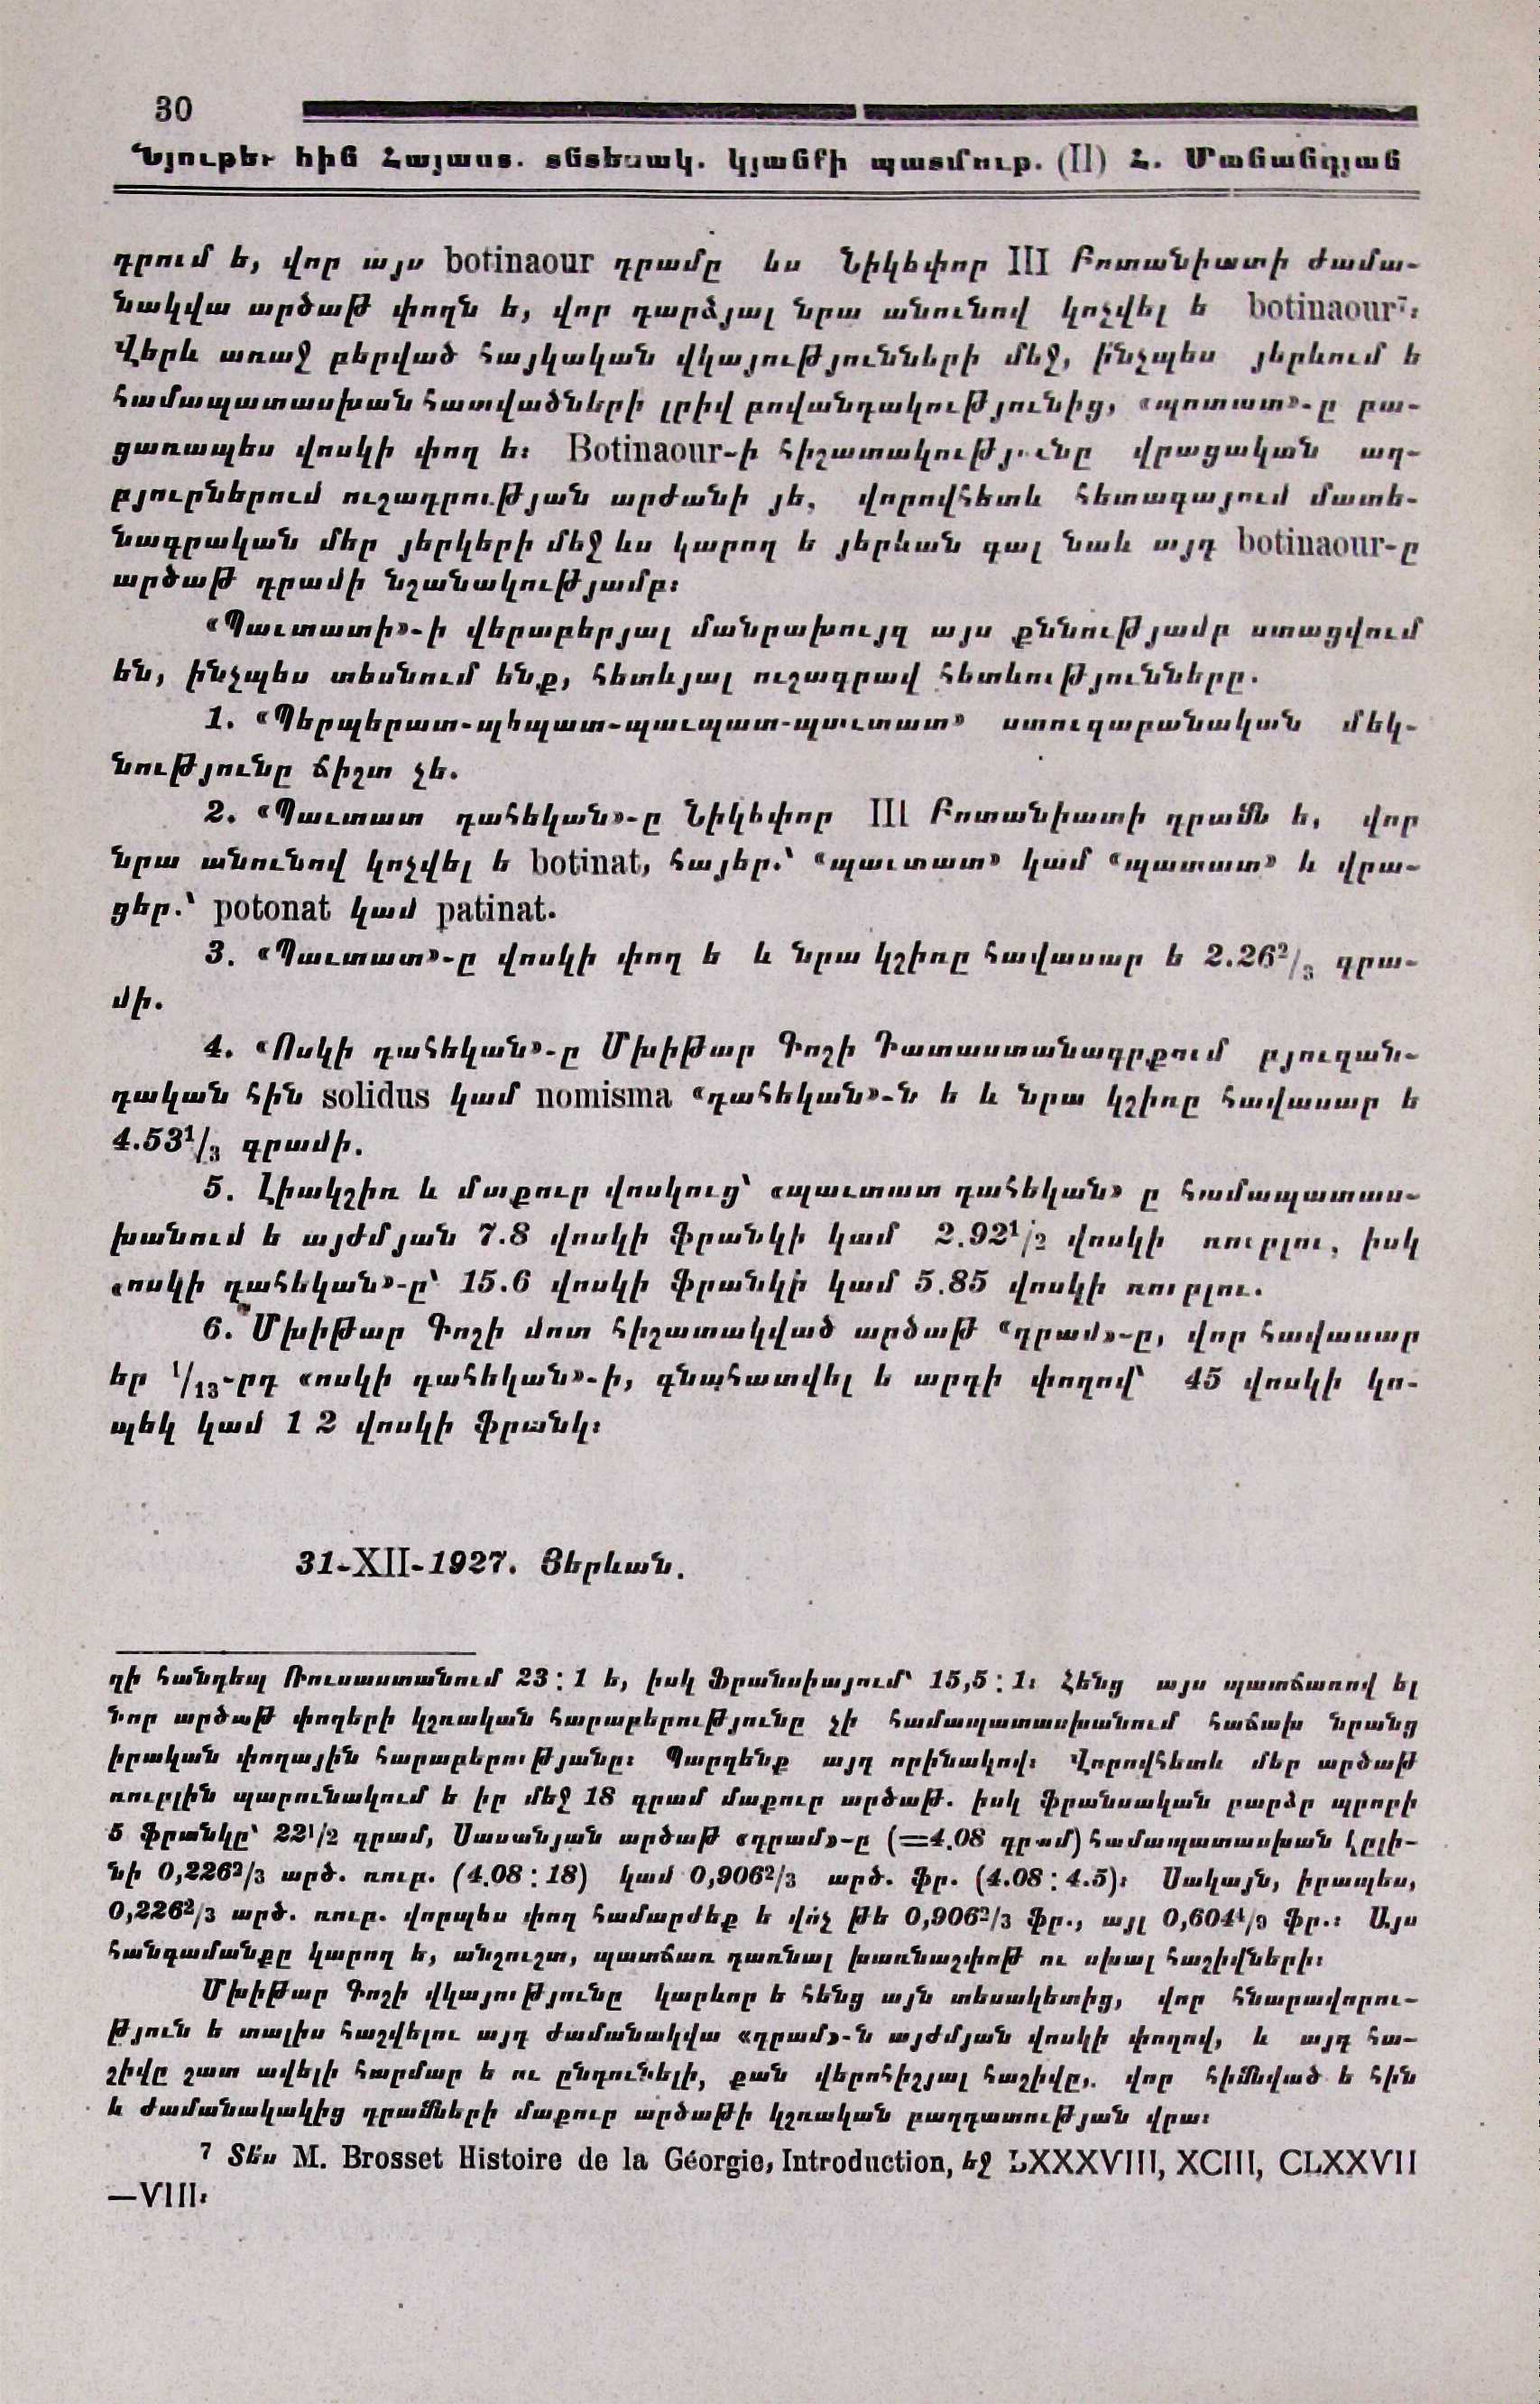 30
Նյութեր հին Հայաստ. տնտեսակ. կյանքի պատմութ. (II) Հ. Մանանդյան
դրում ե, վոր այս botinaour դրամը ևս Նիկեփոր III Բոտանիատի ժամա-
նակվա արծաթ փողն ե, վոր դարձյալ նրա անունով կոչվել ե botinaour⁷։
Վերև առաջ բերված հայկական վկայությունների մեջ, ինչպես յերևում ե
համապատասխան հատվածների լրիվ բովանդակությունից, «պոտատ»-ը բա-
ցառապես վոսկի փող ե։ Botinaour-ի հիշատակությունը վրացական աղ-
բյուրներում ուշադրության արժանի յե, վորովհետև հետագայում մատե-
նագրական մեր յերկերի մեջ ևս կարող ե յերևան գալ նաև այդ botinaour-ը
արծաթ դրամի նշանակությամբ։
«Պաւտատի»-ի վերաբերյալ մանրախույզ այս քննությամբ ստացվում
են, ինչպես տեսնում ենք, հետևյալ ուշագրավ հետևությունները.
1. «Պերպերատ-պեպատ-պաւպատ-պաւտատ» ստուգաբանական մեկ-
նությունը ճիշտ չե.
2. «Պաւտատ դահեկան»-ը Նիկեփոր III Բոտանիատի դրամն ե, վոր
նրա անունով կոչվել ե botinat, հայեր.՝ «պաւտատ» կամ «պատատ» և վրա-
ցեր.՝ potonat կամ patinat.
3. «Պաւտատ»-ը վոսկի փող ե և նրա կշիռը հավասար ե 2.26²/₃ գրա-
մի.
4. «Ոսկի դահեկան»-ը Մխիթար Գոշի Դատաստանագրքում բյուզան-
դական հին solidus կամ nomisma «դահեկան»-ն ե և նրա կշիռը հավասար ե
4.53¹/₃ գրամի.
5. Լիակշիռ և մաքուր վոսկուց՝ «պաւտատ դահեկան» ը համապատաս-
խանում ե այժմյան 7.8 վոսկի ֆրանկի կամ 2.92¹/₂ վոսկի ռուբլու, իսկ
«ոսկի դահեկան»-ը՝ 15.6 վոսկի ֆրանկի կամ 5.85 վոսկի ռուբլու.
6. Մխիթար Գոշի մոտ հիշատակված արծաթ «դրամ»-ը, վոր հավասար
եր ¹/₁₃-րդ «ոսկի դահեկան»-ի, գնահատվել ե արդի փողով՝ 45 վոսկի կո-
պեկ կամ 1 2 վոսկի ֆրանկ։
31-XII-1927. Յերևան.
ղի հանդեպ Ռուսաստանում 23 : 1 ե, իսկ Ֆրանսիայում՝ 15,5 : 1։ Հենց այս պատճառով ել
նոր արծաթ փողերի կշռական հարաբերությունը չի համապատասխանում հաճախ նրանց
իրական փողային հարաբերությանը։ Պարզենք այդ որինակով։ Վորովհետև մեր արծաթ
ռուբլին պարունակում ե իր մեջ 18 գրամ մաքուր արծաթ. իսկ ֆրանսական բարձր պրոբի
5 ֆրանկը՝ 22¹/₂ գրամ, Սասանյան արծաթ «դրամ»-ը (=4.08 գրամ) համապատասխան կըլի-
նի 0,226²/₃ արծ. ռուբ. (4.08 : 18) կամ 0,906²/₃ արծ. ֆր. (4.08 : 4.5)։ Սակայն, իրապես,
0,226²/₃ արծ. ռուբ. վորպես փող համարժեք ե վո՛չ թե 0,906²/₃ ֆր., այլ 0,604⁴/₉ ֆր.։ Այս
հանգամանքը կարող ե, անշուշտ, պատճառ դառնալ խառնաշփոթ ու սխալ հաշիվների։
Մխիթար Գոշի վկայությունը կարևոր ե հենց այն տեսակետից, վոր հնարավորու-
թյուն ե տալիս հաշվելու այդ ժամանակվա «դրամ»-ն այժմյան վոսկի փողով, և այդ հա-
շիվը շատ ավելի հարմար ե ու ընդունելի, քան վերոհիշյալ հաշիվը, վոր հիմնված ե հին
և ժամանակակից դրամների մաքուր արծաթի կշռական բաղդատության վրա։
⁷ Տես M. Brosset Histoire de la Géorgie, Introduction, եջ LXXXVIII, XCIII, CLXXVII
—VIII։